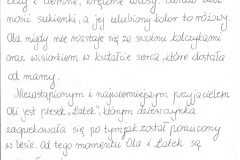 oczy i ciemne, kręcone włosy. Lubi
nosić sukienki, a jej ulubiony kolor to różowy.
Ola nigdy nie rozstaje się ze swoimi kolczykami
oraz wisiorkiem w kształcie serca, które dostała
od mamy.
Niezastąpionym i najwierniejszym przyjacielem
Oli jest piesek „Łatek", którym dziewczynka
zaopiekowała się po tym jak został porzucony
w lesie. Od tego momentu Ola i Łatek są